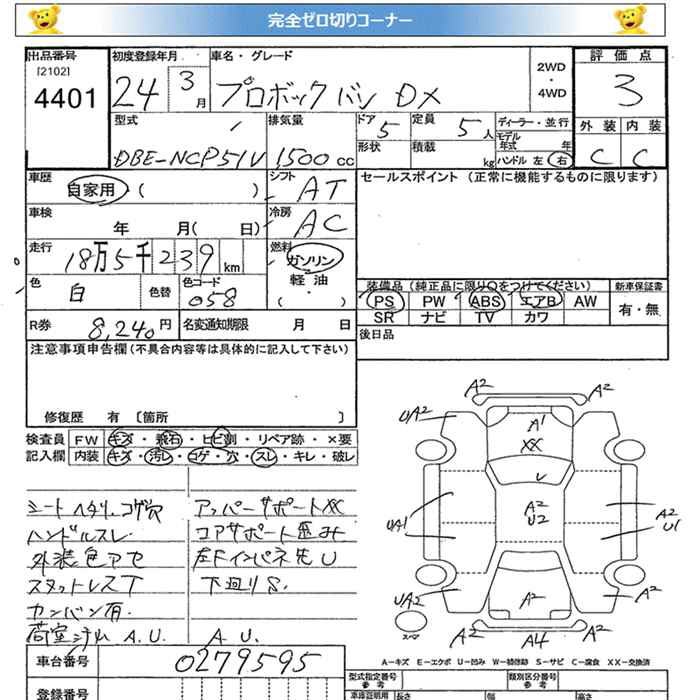 完全ゼロ切りコーナー
出品番号
[2102]
4401
初度登録年月
24 3月
車名・グレード
プロボックス バン DX
2WD
・
4WD
評価点
3
外装 内装
C C
型式
DBE-NCP51V
排気量
1,500 cc
ドア
5
定員
5 人
形状
積載
kg
ディーラー・並行
モデル
年式 年
ハンドル 左 右
車歴
自家用 ( )
シフト
AT
セールスポイント (正常に機能するものに限ります)
車検
年 月( 日)
冷房
AC
走行
18万5千239 km
燃料
ガソリン
軽油
( ・ )
色
白
色替
色コード
058
装備品 (純正品に限り○をつけてください)
PS PW ABS エアB AW
SR ナビ TV カワ
新車保証書
有・無
R券
8,240 円
名変通知期限 月 日
後日品
注意事項申告欄 (不具合内容等は具体的に記入して下さい)
修復歴 有 [箇所 ]
検査員 FW キズ・飛石・ヒビ割・リペア跡・×要
記入欄 内装 キズ・汚レ・コゲ・穴・スレ・キレ・破レ
シートヘタリ、コゲ穴
ハンドルスレ
外装色アセ
スタットレスT
カンバン有.
A.U.
アッパーサポートXX
コアサポート歪み
左Fインパネ先U
下廻りS.
A U.
A2 A2
UA2 A2
A1
XX
U
A2
U2
UA1
A2
U1
UA2
A2
A2
スペア
A2 A4 A2
A―キズ E―エクボ U―凹み W―補修跡 S―サビ C―腐食 XX―交換済
車台番号
0279595
登録番号
型式指定番号
参考
類別区分番号
参考
車庫証明用
長さ
幅
高さ